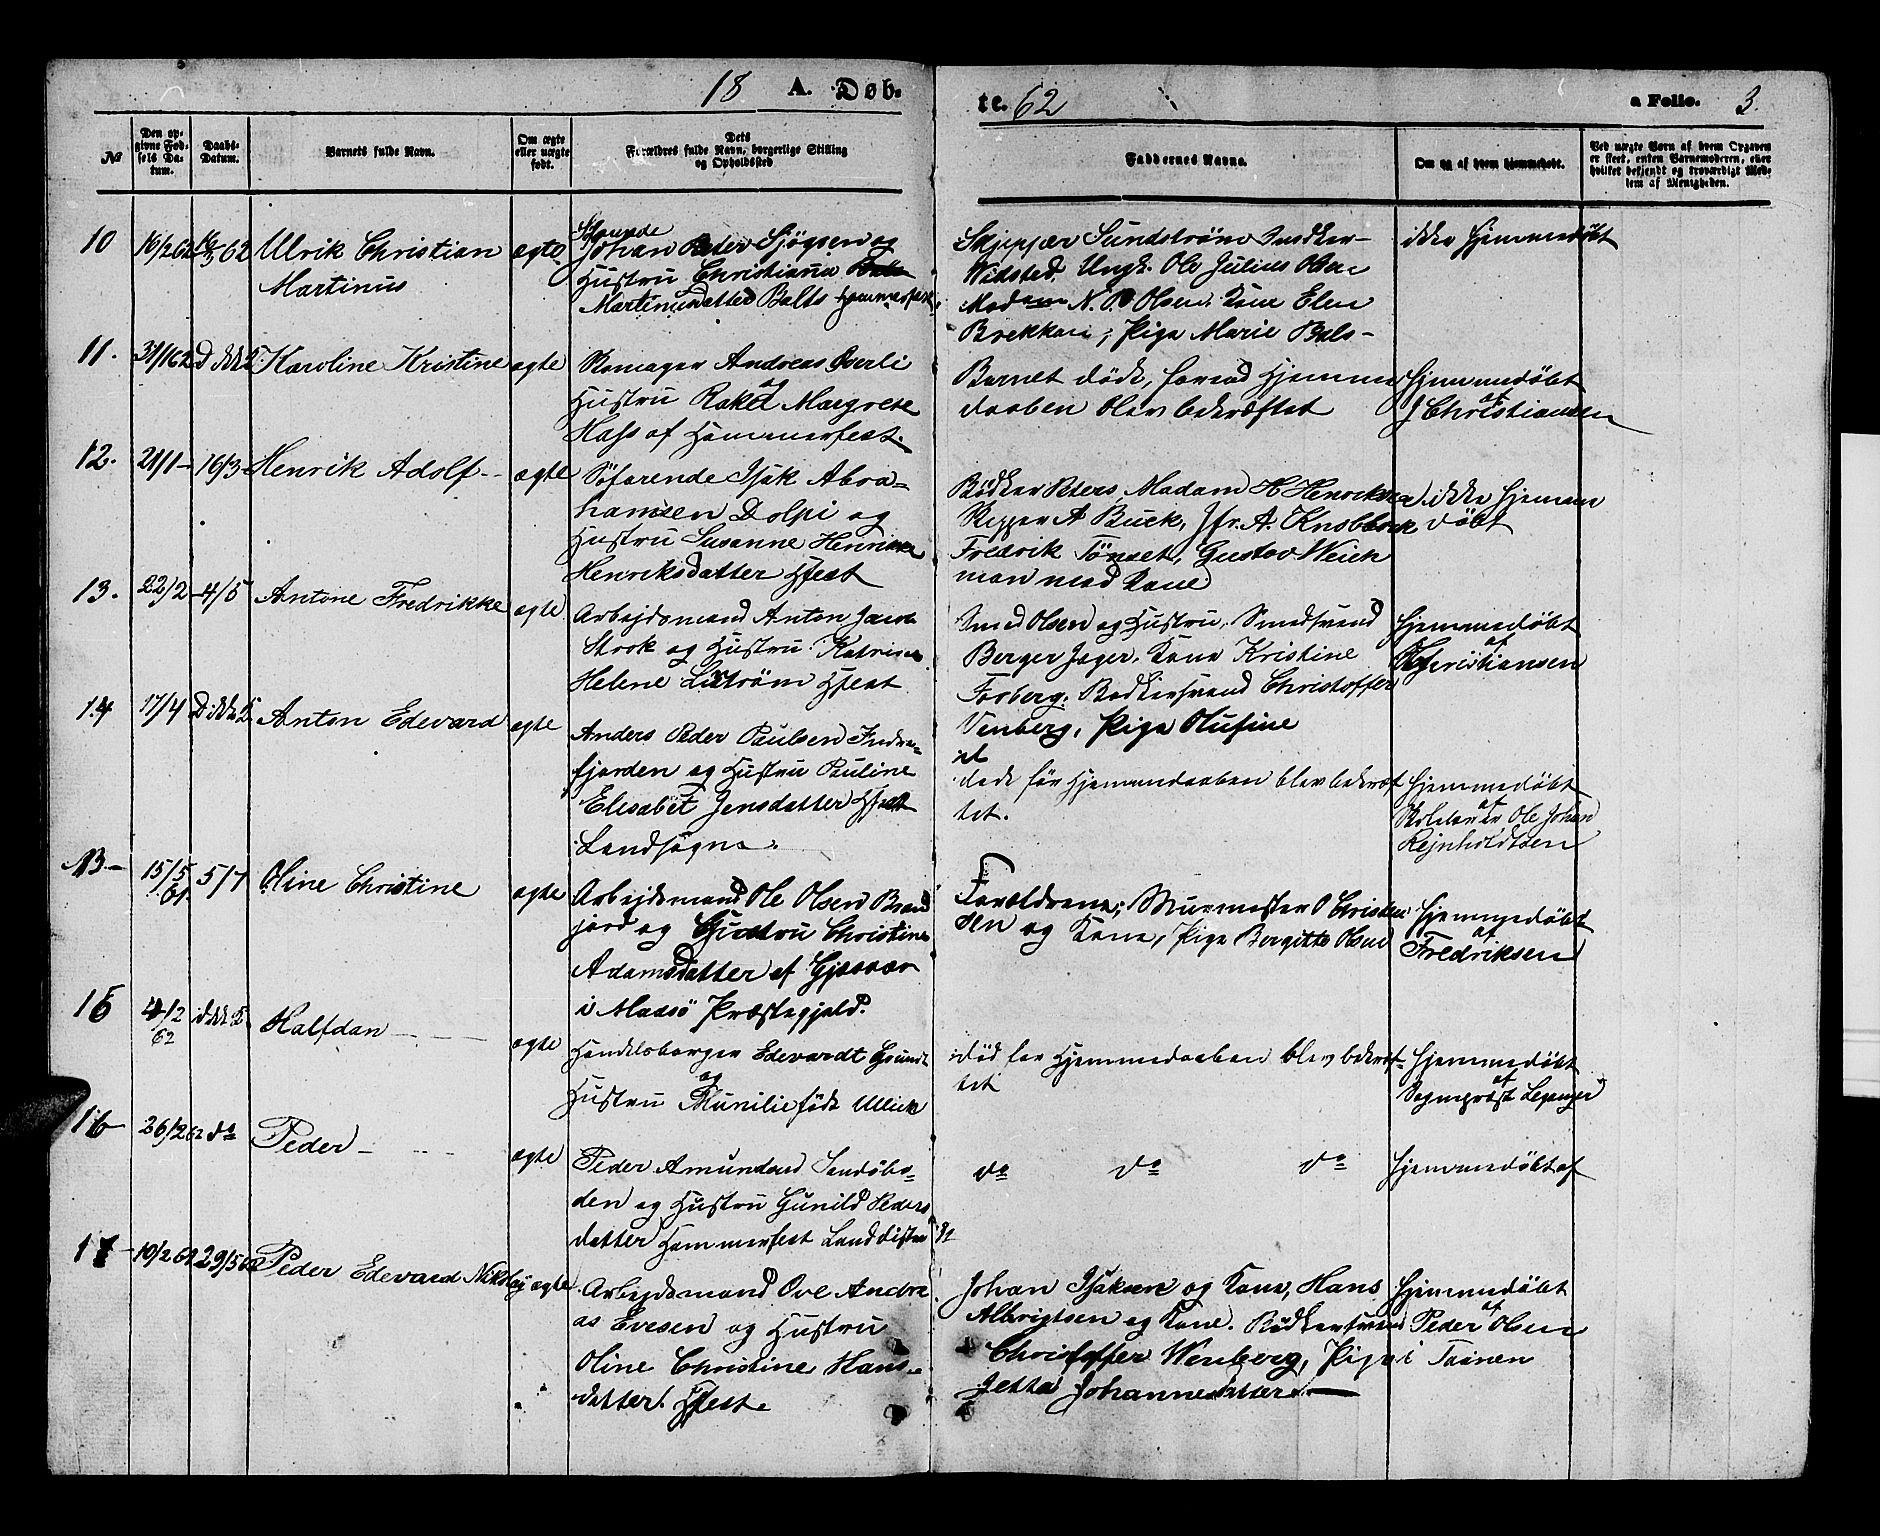 18 A. Døb-
te. 62 a Folio. 3.
№
Den op-
givne Fød-
sels Da-
tum.
Daabs-
Datum.
Barnets fulde Navn.
Om ægte
eller uægte
født.
Dets
Forældres fulde Navn, borgerlige Stilling
og Opholdssted
Faddernes Navne.
Om og af hvem hjemmedøbt.
Ved uægte Børn af hvem Opgaven
er skeet, enten Barnemoderen, eller
hvilket bekjendt og troværdigt Med-
lem af Menigheden.
10 16/2 62 62 Ulrik Christian
Martinus
ægte
Johan Peder Sjøgren og
Hustru Christianna
Martinusdatter Balts Hammerfest
Skjepper Sundstrøm Snedker-
Widsted, Ungk. Ole Julius Olsen
Madam N. P. Olsen, Kone Elen
Brekkan, Pige Marie Bals-
ikke hjemmedøbt
11. 31/1 62 D ikke Karoline Kristine ægte
Skomager Andreas Øverli
og
Hustru Rakel Margrete
Hass af Hammerfest.
Barnet døde, forend Hjemme
daaben blev bekræftet
hjemmedøbt
af
J Christiansen
12. 21/1 - 16/3 Henrik Adolf - - ægte
Søfarende Isak Abra-
hamsen Dolpi og
Hustru Susanne Henrikke
Henriksdatter Hfest
Bødker Peters, Madam H Henriksen
Skipper A Buck, Jfr. A. Knobblock
Fredrik Tønset, Gustav Weich
man med Kone
ikke hjemme
døbt
13. 22/2 - 4/5 Antone Fredrikke ægte
Arbejdsmand Anton Jacob
Strok og Hustru Katrine
Helene Liström Hfest
Smed Olsen og Hustru, Smedsvend
Berger Jager, Kone Kristine
Forberg, Bødkersvend Christoffer
Venberg, Pige Olufine
hjemmedøbt
af
Christiansen
14 17/4 D ikke Anton Edevard ægte
Anders Peder Paulsen Indre-
fjorden og Hustru Pauline
Elisabet Jensdatter Hfest
Landsogn.
døde før Hjemmedaaben blev bekræf
tet.
hjemmedøbt
af
Skolelærer Ole Johan
Rejnholdtsen
15/5
61. 5/7 Oline Christine ægte
Arbejdsmand Ole Olsen Brend
jord og Hustru Christine
Adamsdatter af Gjesvær
i Maasø Præstegjeld.
Forældrene, Murmester O Christen
sen og Kone, Pige Bergitte Olsen
hjemmedøbt
af
Fredriksen
15 4/2
62 D ikke Halfdan - - - ægte
Handelsborger Edevardt Grundt
og
Hustru Munilie født Ullich
død før Hjemmedaaben blev bekræf-
tet
hjemmedøbt
af
Sogneprest Leganger
16 26/2 62 do Peder - - - ægte
Peder Amundsen Sandøbo-
den og Hustru Gunild Peders
datter Hammerfest Landdistri
do do do
hjemmedøbt af
17 10/2 62 29/5 62 Peder Edevard Nikolaj ægte
Arbejdsmand Ove Andre
as Evesen og Hustru
Oline Christine Hans-
datter Hfest.
Johan Isaksen og Kone, Hans
Albrigtsen og Kone, Bødkersvend
Christoffer Wenberg, Pige
Jetta Johannesdatter.
hjemmedøbt
af
Peder Olsen
i Tainen